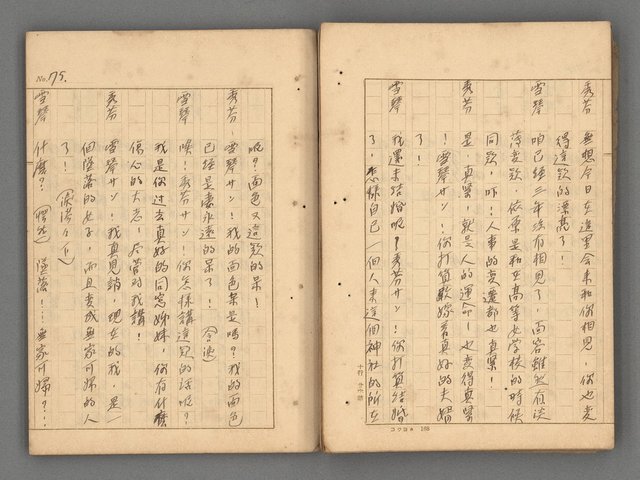 秀芬 無想今日在這里会來和你相見,你也変
得這款的漂亮了!
雪琴 咱已経三年沒有相見了,面容雖然有淡
薄変款,依原是和在高等女学校的時候
同款,吓!人事的変遷都也真緊!
秀芬 是,真緊!就是人的運命!也変得真緊
!雪琴サン!你打算敢嫁着真好的夫婿
了!
雪琴 我還未結婚呢?秀芬サン!你打算結婚
了,怎様自己一個人來這個神社的所在
十行 廿六語
コクヨホ 168
No. 75.
呢?面色又這款的呆!
秀芬 雪琴サン!我的面色呆是嗎?我的面色
已経是永遠的呆了!
雪琴 唉!秀芬サン!你怎様講這見的話呢?
我是你过去真好的同窓姊妹,你有什麼
傷心的大志!尽管対我講!
秀芬 雪琴サン!我真見誚,現在的我,是一
個墜落的女子,而且変成無家可婦的人
了!(淚落々下)
雪琴 什麼?(愕然)墜落!…無家可婦?…